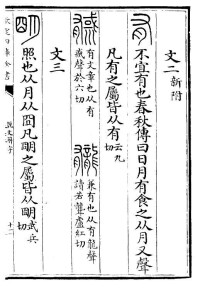 文二新附
有 不宜有也春秋傳曰日月有食之从月又聲
凡有之屬皆从有云九切
有文章也从有
聲於六切
龓 兼有也从有龍聲
讀若聾盧紅切
文三
朙 照也从月从囧凡朙之屬皆从朙武兵切
欽定四庫全書
説文解字